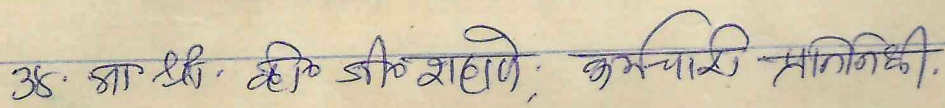 38. मा श्री. व्ही० जी० शहाणे, कर्मचारी प्रतिनिधी.